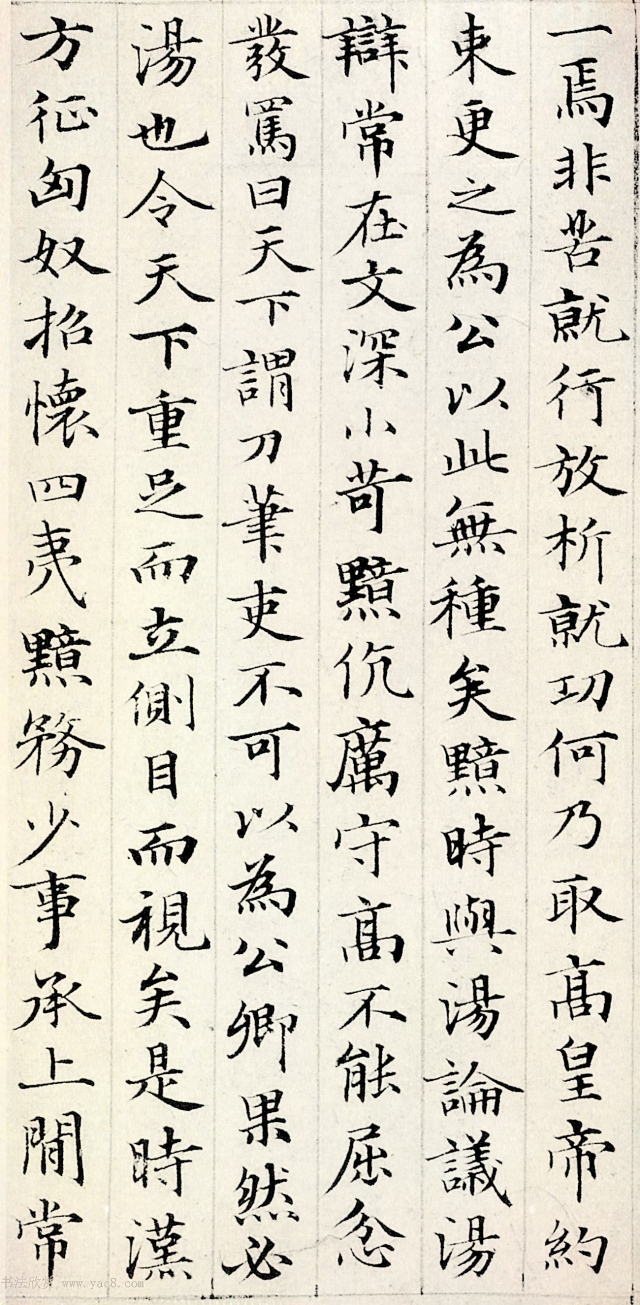 一焉非苦就行放析就功何乃取髙皇帝約
束更之為公以此無種矣黯時與湯論議湯
辯常在文深小苛黯伉厲守髙不能屈忿
發罵曰天下謂刀筆吏不可以為公卿果然必
湯也令天下重足而立側目而視矣是時漢
方征匈奴招懷四夷黯務少事承上間常
书法欣赏 www.yac8.com